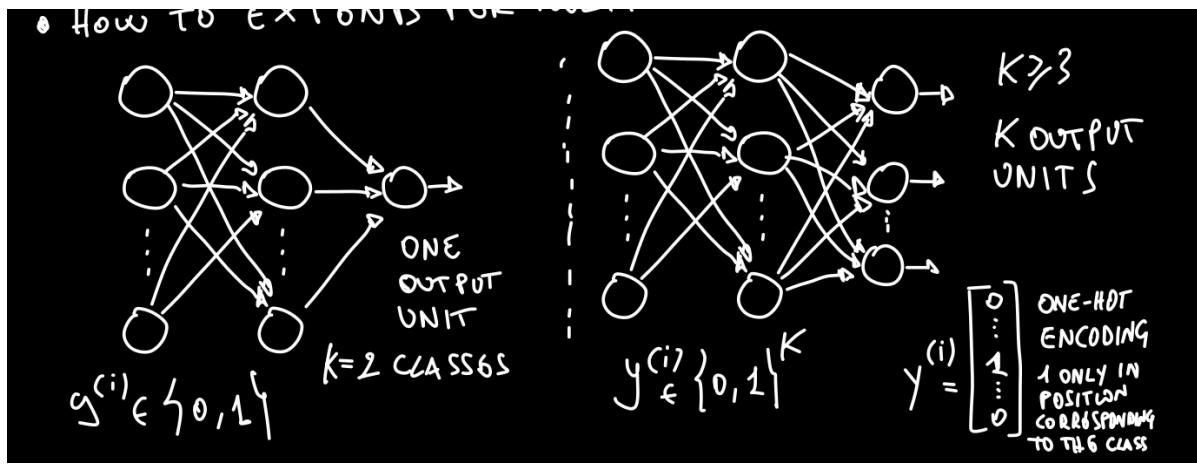 • HOW TO EXTONDS FOR
ONE
OUTPUT
UNIT
K=2 CLASSES
y^(i) ∈ {0,1}
K≥3
K OUTPUT
UNITS
y^(i) ∈ {0,1}^K
y^(i) = [0 ⋮ 1 ⋮ 0]
ONE-HOT
ENCODING
1 ONLY IN
POSITION
CORRESPONDING
TO THE CLASS